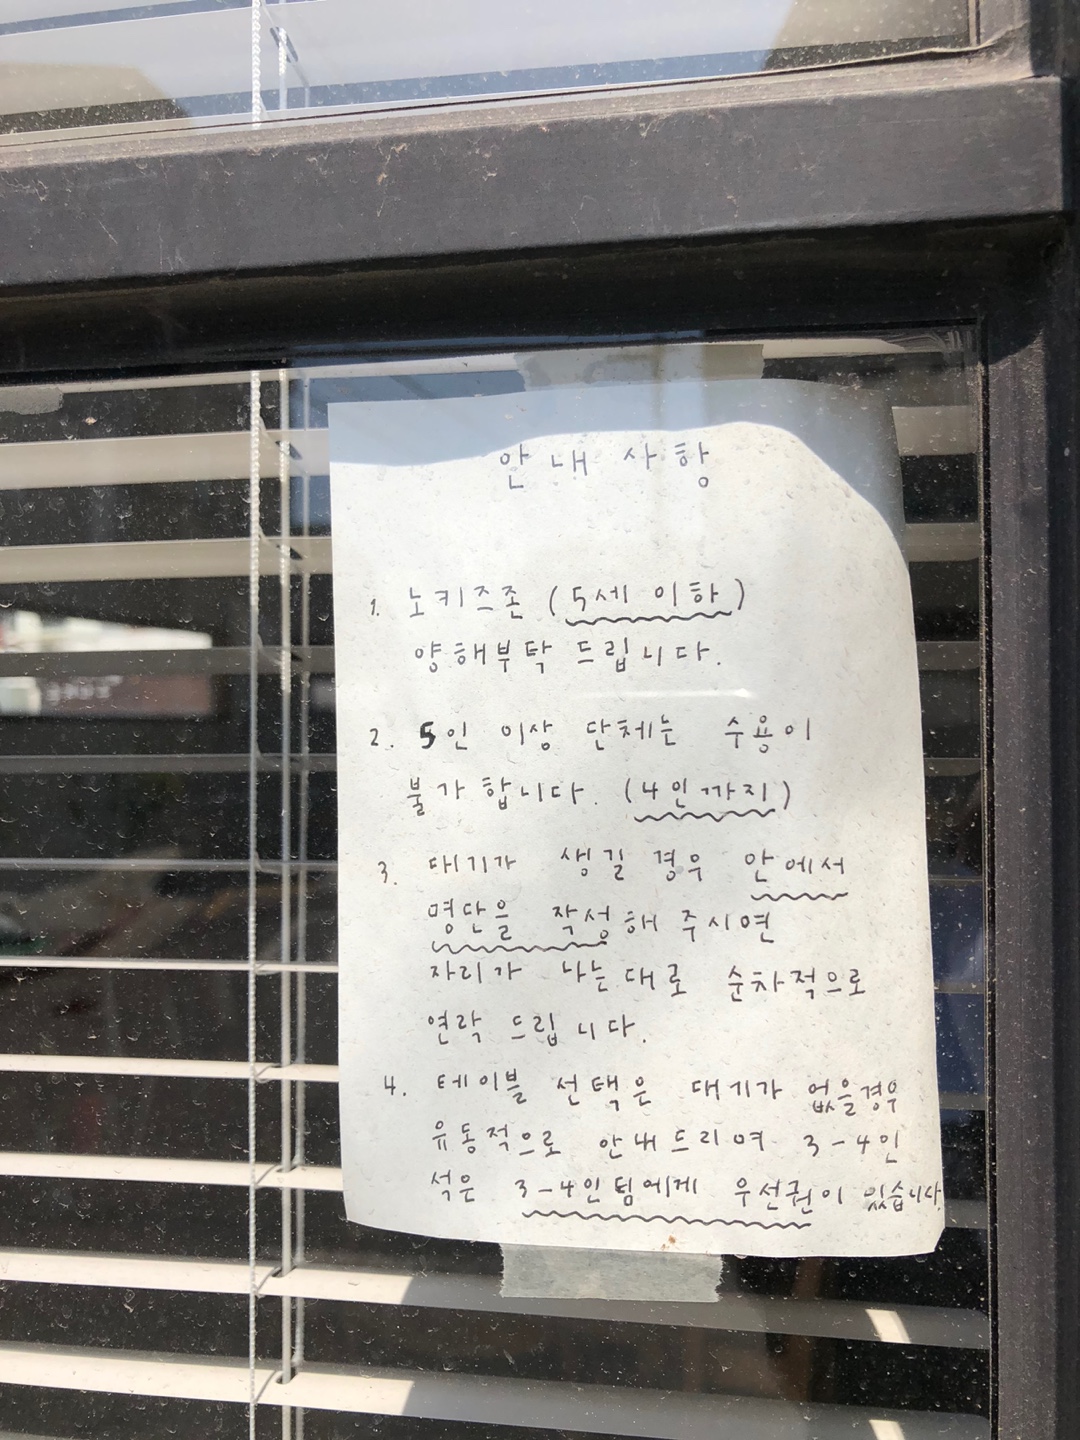 안내사항
1. 노키즈존 (5세 이하)
양해부탁 드립니다.
2. 5인 이상 단체는 수용이
불가합니다. (4인까지)
3. 대기가 생길 경우 안에서
명단을 작성해 주시면
자리가 나는대로 순차적으로
연락 드립니다.
4. 테이블 선택은 대기가 없을경우
유동적으로 안내드리며 3-4인
석은 3-4인팀에게 우선권이 있습니다.